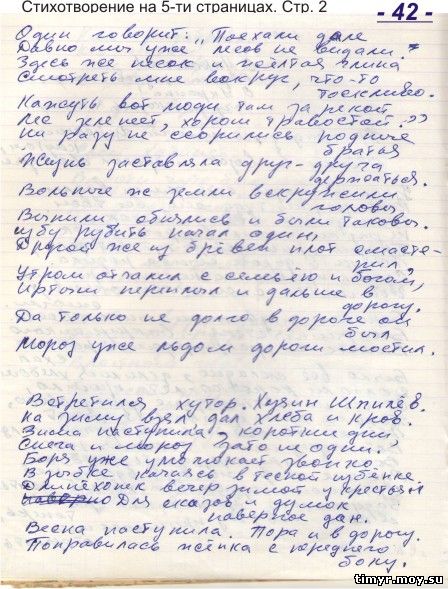 Стихотворение на 5-ти страницах. Стр. 2
- 42 -
Один говорит: „Поехали дале
Давно мы уже лесов не видали."
Здесь же песок и жёлтая глина
Смотреть мне вокруг, что-то
тоскливо.
Кажуть вот люди там за рекой
Лес зеленеет, хвором травостой."
Ни разу не ссорились родные
братья
Жизнь заставляла друг-друга
держаться.
Вольные ж земли вскружили
головы
Выпили, обнялись и были таковы.
избу рубить начал один,
Другой же из брёвен плот смасте-
рил,
Утром отчалил с семьёю и богом,
Иртыш переплыл и дальше в
дорогу.
Да только не долго в дороге он
был
Мороз уже льдом дороги мостил.
Встретился хутор. Хозяин Шпилёв.
На зиму взял дал хлеба и кров.
Зима наступила, короткие дни,
Снега и мороз зато не одни.
Боря уже умолкает звонко
В зыбке качаясь в тесной избёнке.
Длинехонек вечер зимой у крестьян
Для сказов и думок
наверное дан.
Весна наступила. Пора и в дорогу.
Понравилась жёнка с переднего
боку.
timyr.moy.su